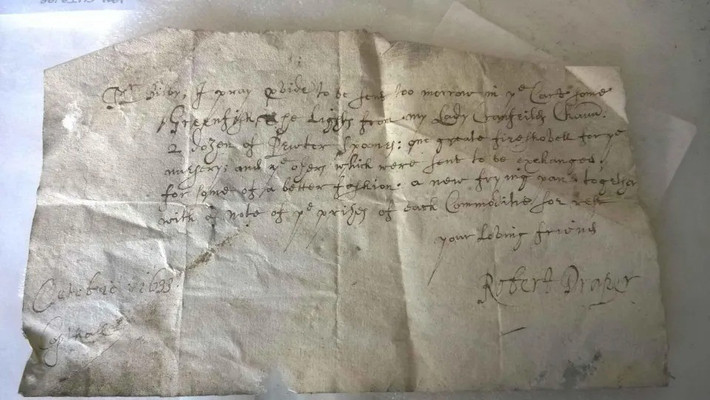 Mr Bilby, I pray p̱vide to be sent too morrow in ye Cart some
Greenfish, The Lights from my Lady Cranfeilds Cham:
2 dozen of Pewter spoons: one greate fireshovell for ye
nursery; and ye others which were sent to be exchanged
for some of a better fashion, a new frying pan together
with a note of ye prises of each Commoditie for rest
your loving friend
Robert Draper
Octobre 1633